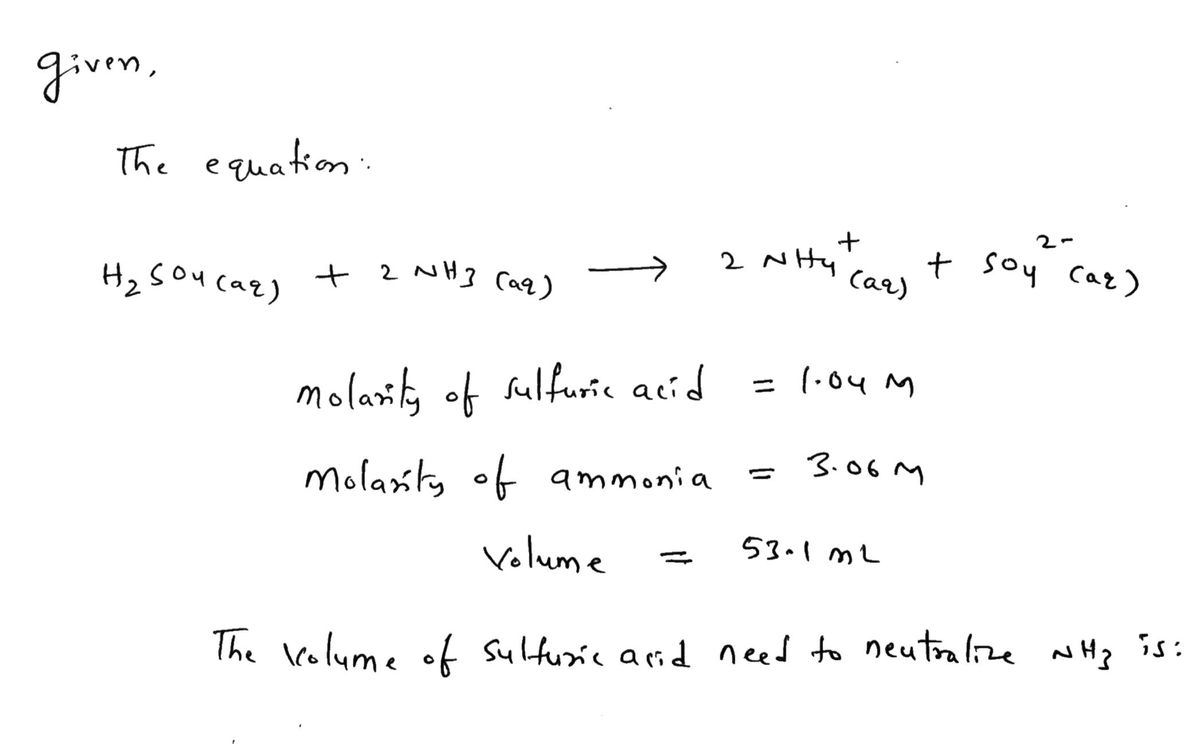 given,
The equation:
H₂SO₄(aq) + 2 NH₃(aq) → 2 NH₄⁺(aq) + SO₄²⁻(aq)
Molarity of sulfuric acid = 1.04 M
Molarity of ammonia = 3.06 M
Volume = 53.1 mL
The volume of sulfuric acid need to neutralize NH₃ is: